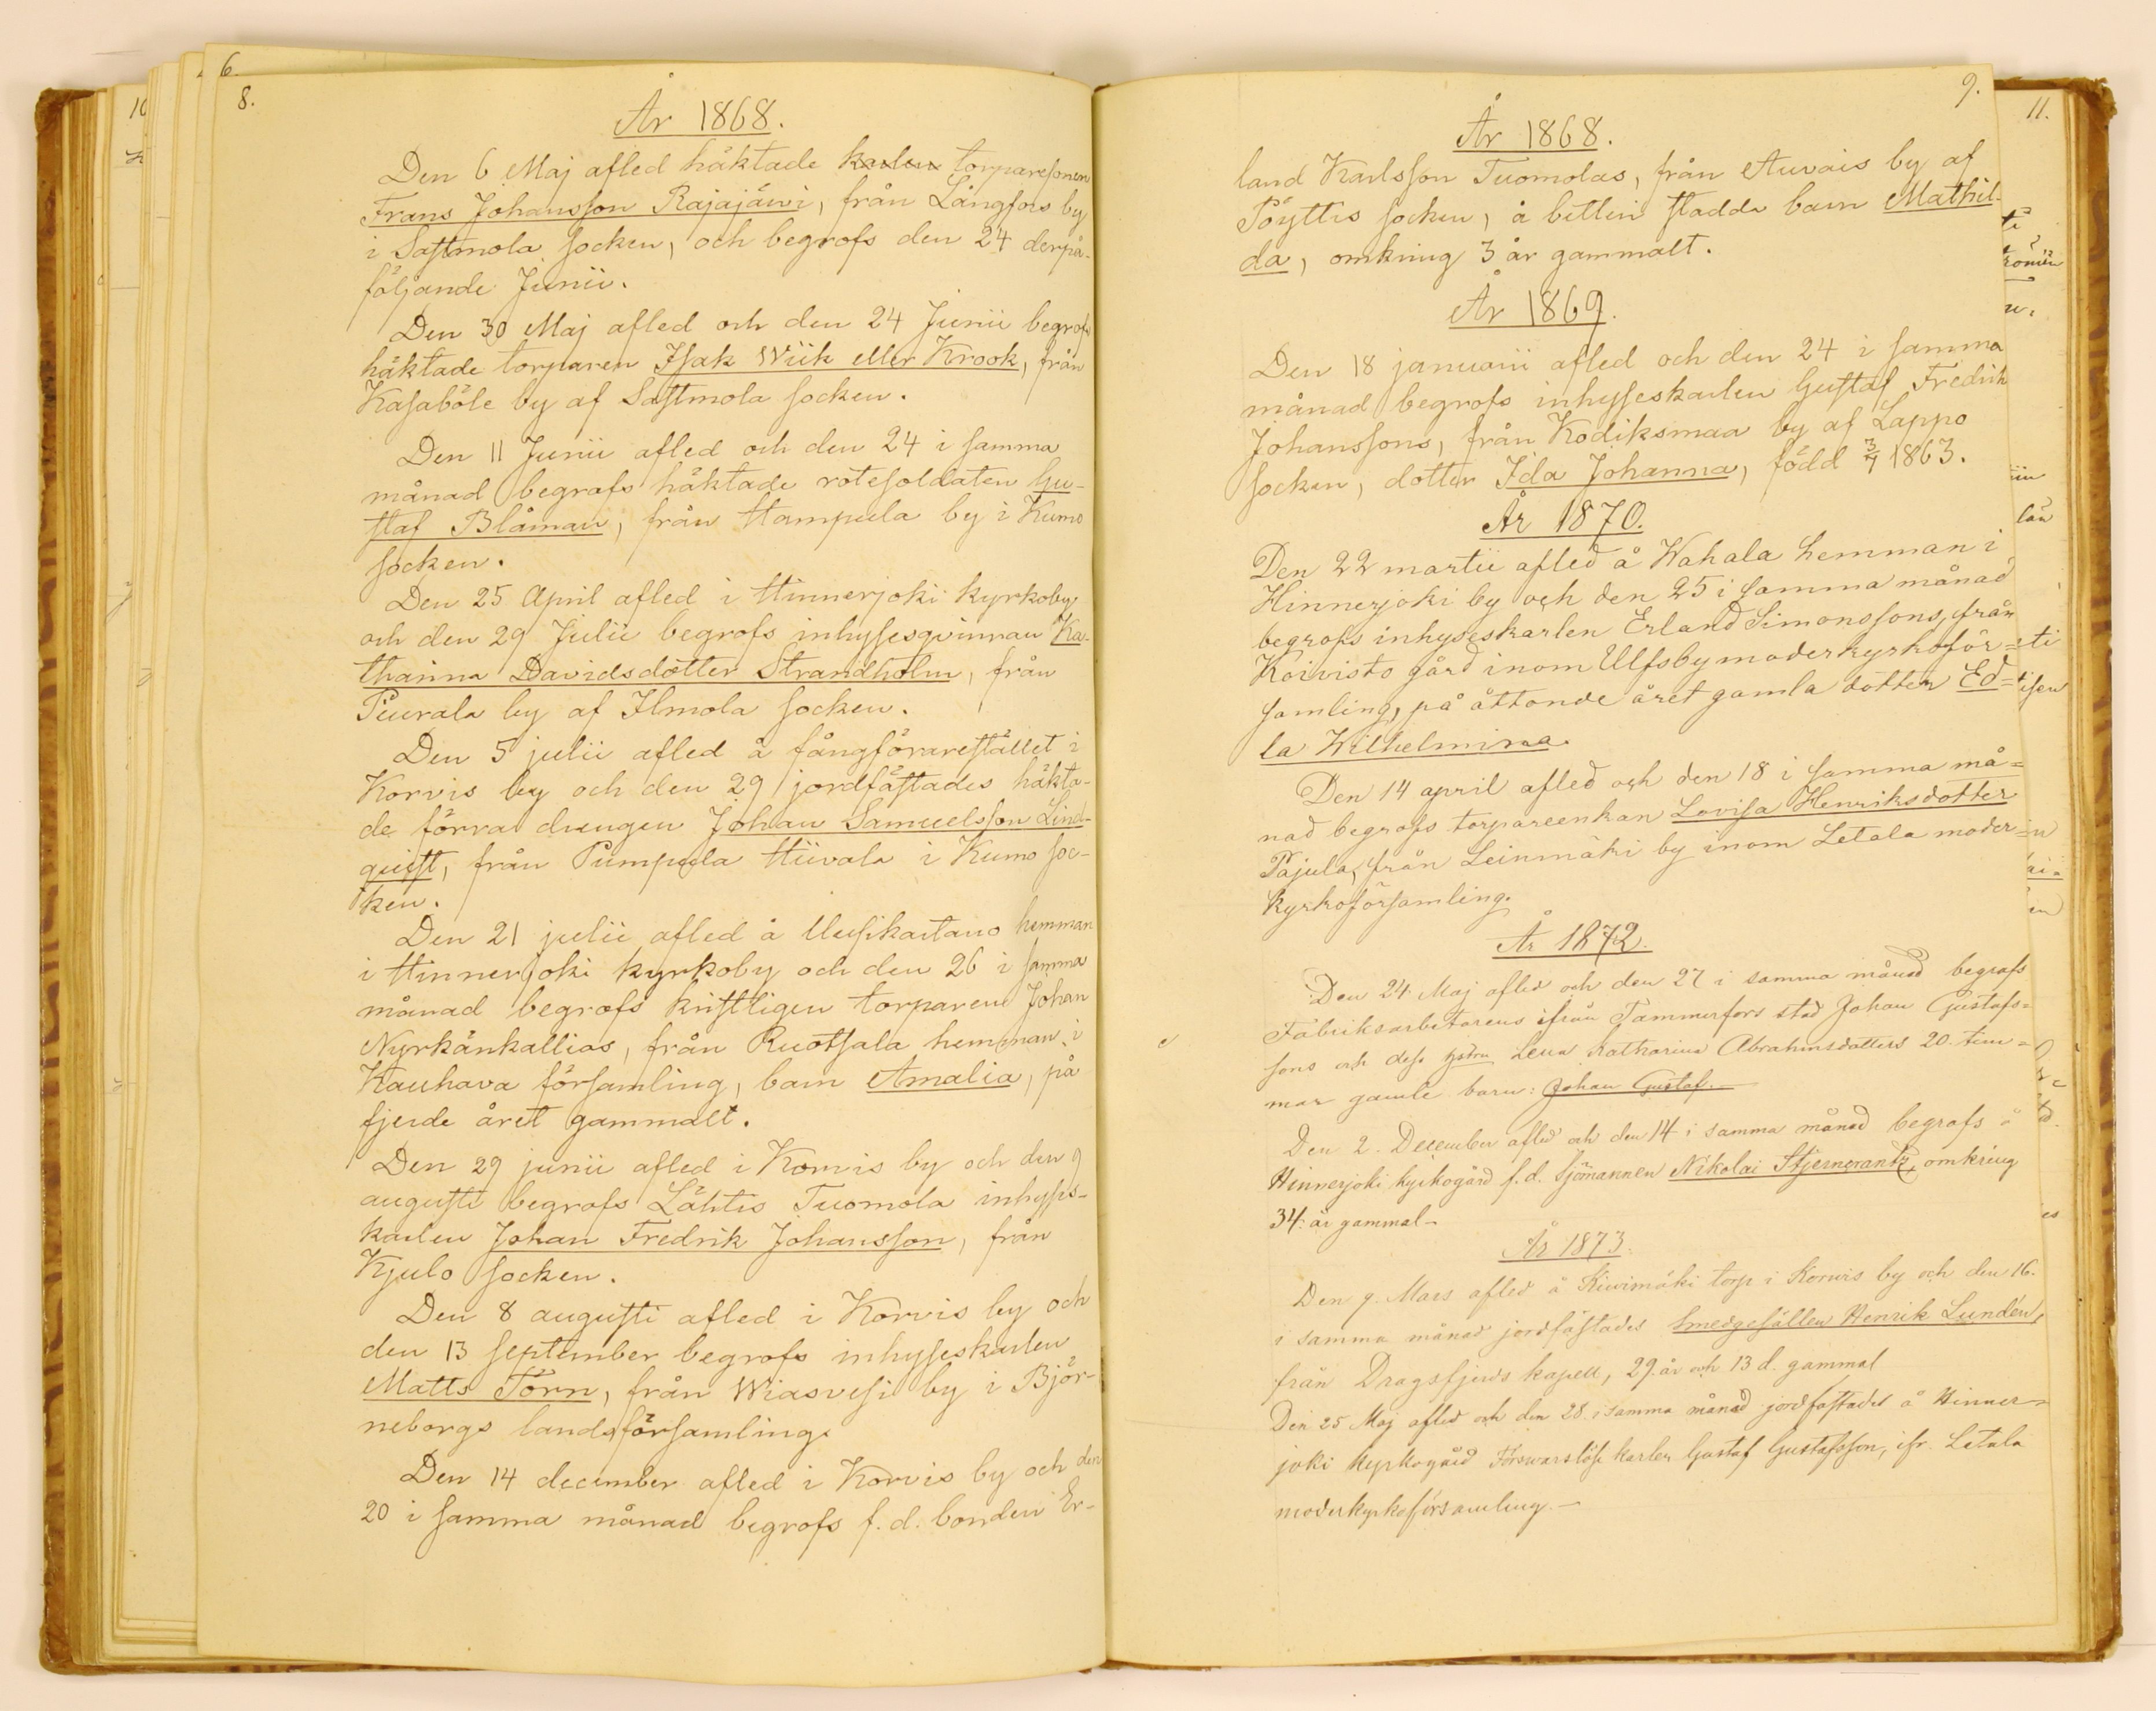 8.
År 1868.
Den 6 Maj afled häktade karlen torparesonen
Frans Johansson Rajajäwi, från Långfors by
i Sastmola socken, och begrofs den 24 derpå-
följande Junii.
Den 30 Maj afled och den 24 Junii begrofs
häktade torparen Isak Wiik eller Krook, från
Kasaböle by af Sastmola socken.
Den 11 Junii afled och den 24 i samma
månad begrafs häktade rotesoldaten Gu-
staf Blåman, från Hampula by i Kumo
socken.
Den 25 April afled i Hinnerjoki kyrkoby
och den 29 Julii begrofs inhysesqvinnan Ka-
tharina Davidsdotter Strandholm, från
Puurala by af Ilmola socken.
Den 5 julii afled å fångförarestället i
Korvis by och den 29 jordfästades häkta-
de förra drengen Johan Samuelsson Lind-
quist, från Pumpula Hiivala i Kumo soc-
ken.
Den 21 julii afled å Uusikartano hemman
i Hinnerjoki kyrkoby och den 26 i samma
månad begrofs kristligen torparen Johan
Nyrkänkallios, från Ruotsala hemman i
Kauhava församling, barn Amalia, på
fjerde året gammalt.
Den 29 junii afled i Korvis by och den 9
augusti begrofs Lähtis Tuomola inhyses-
karlen Johan Fredrik Johansson, från
Kjulo socken.
Den 8 augusti afled i Korvis by och
den 13 september begrofs inhyseskarlen
Matts Törn, från Wiasvesi by i Björ-
neborgs landsförsamling.
Den 14 december afled i Korvis by och den
20 i samma månad begrofs f.d. bonden Er-
9.
År 1868.
land Karlsson Tuomolas, från Auvais by af
Pöyttis socken, å bettleri stadda barn Mathil-
da, omkring 3 år gammalt.
År 1869.
Den 18 januarii afled och den 24 i samma
månad begrofs inhyseskarlen Gustaf Fredrik
Johanssons, från Kodiksmaa by af Lappo
socken, dotter Ida Johanna, född 3/7 1863.
År 1870.
Den 22 martii afled å Wahala hemman i
Hinnerjoki by och den 25 i samma månad
begrofs inhyseskarlen Erland Simonssons, från
Koivisto gård inom Ulfsby moderkyrkoför=
samling, på åttonde året gamla dotter Ed=
la Wilhelmina.
Den 14 april afled och den 18 i samma må=
nad begrofs torpareenkan Lovisa Henriksdotter
Pajula, från Leinmäki by inom Letala moder=
kyrkoförsamling.
År 1872.
Den 24 Maj afled och den 27 i samma månad begrafs
Fabriksarbetarens ifrån Tammerfors stad Johan Gustafs=
sons och dess hstru Lena Katharina Abrahmsdotters 20. tim=
mar gamle barn: Johan Gustaf.
Den 2. December afled och den 14 i samma månad begrafs å
Hinnerjoki kyrkogård f.d. Sjömannen Nikolai Stjernerantz, omkring
34: år gammal-
År 1873.
Den 9. Mars afled å Kiwimäki torp i Korwis by och den 16.
i samma månad jordfästades Smedgesällen Henrik Lundén,
från Dragsfjerds kapell, 29. år och 13 d. gammal
Den 25 Maj afled och den 28. i samma månad jordfästades å Hinner=
joki kyrkogård Förswarslöse karlen Gustaf Gustafsson, ifr. Letala
moderkyrkoförsamling.-
6.
10
11.